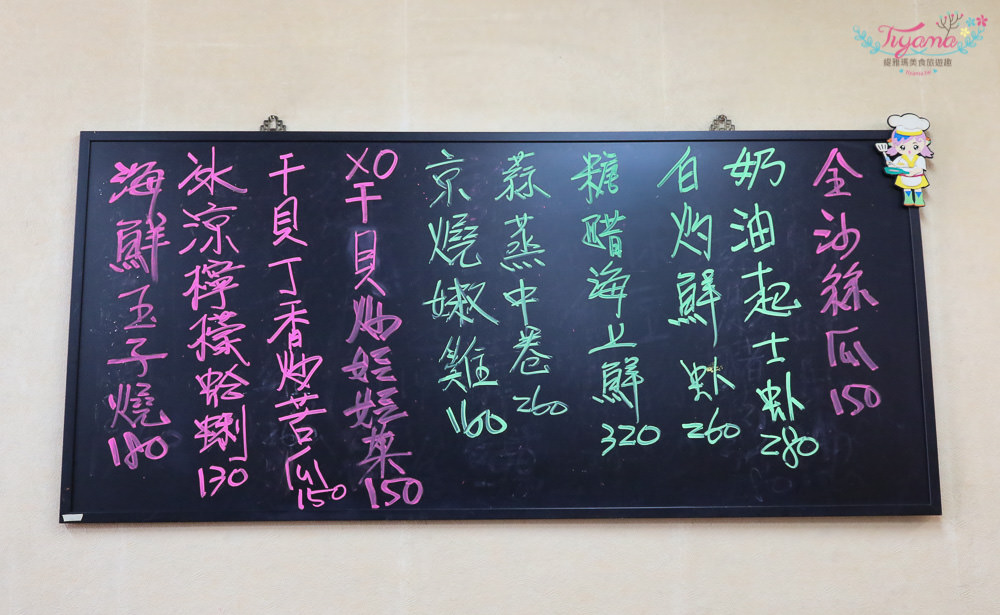 Tiyama
緹雅瑪美食旅遊趣
Tiyama.TW
金沙絲瓜150
奶油起士虾280
白灼鮮虾260
糖醋海上鮮320
蒜蒸中卷260
京燒嫩雞160
XO干貝炒娃娃菜150
干貝丁香炒苦瓜150
冰涼檸檬蛤蜊130
海鮮玉子燒180